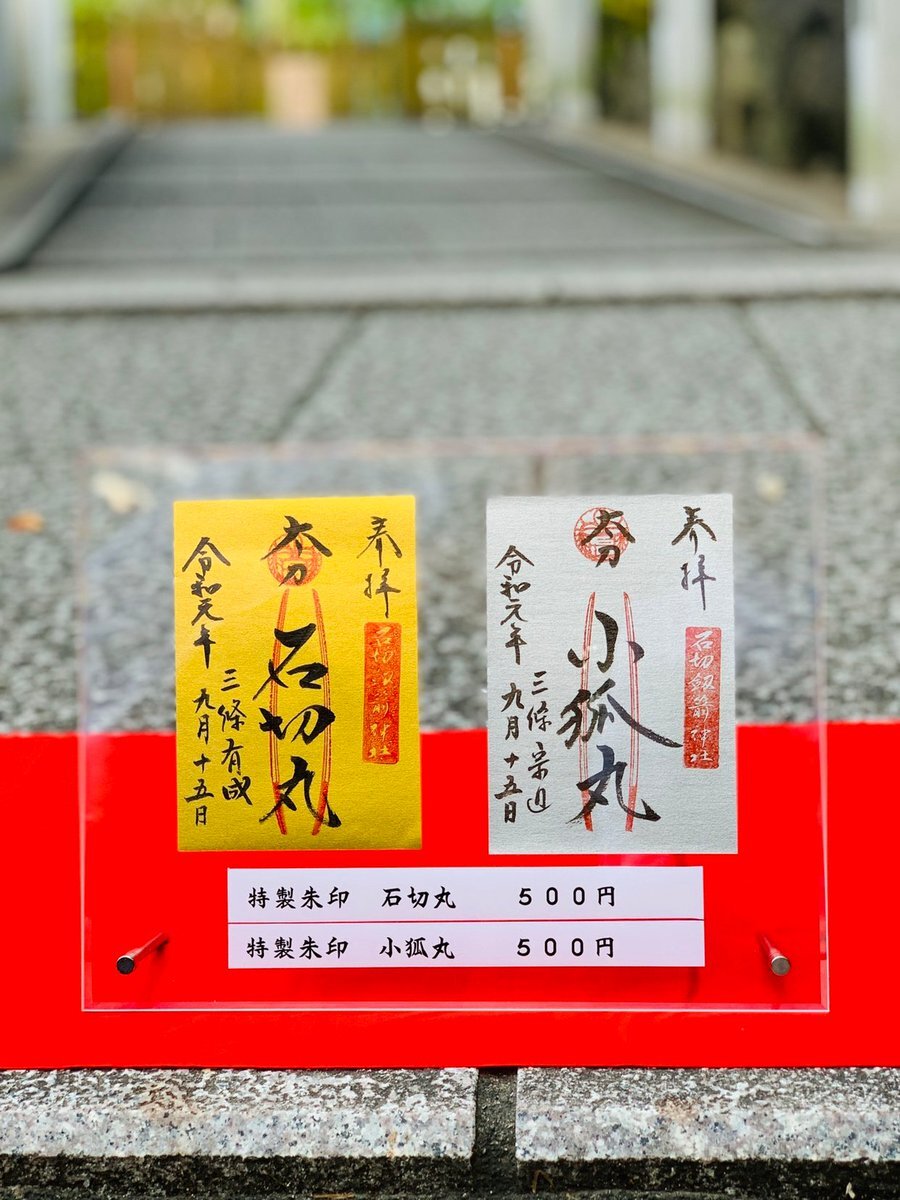 奉拝
石切劔箭神社
太刀
石切丸
三條有成
令和元年
九月十五日
奉拝
石切劔箭神社
太刀
小狐丸
三條宗近
令和元年
九月十五日
特製朱印 石切丸 500円
特製朱印 小狐丸 500円